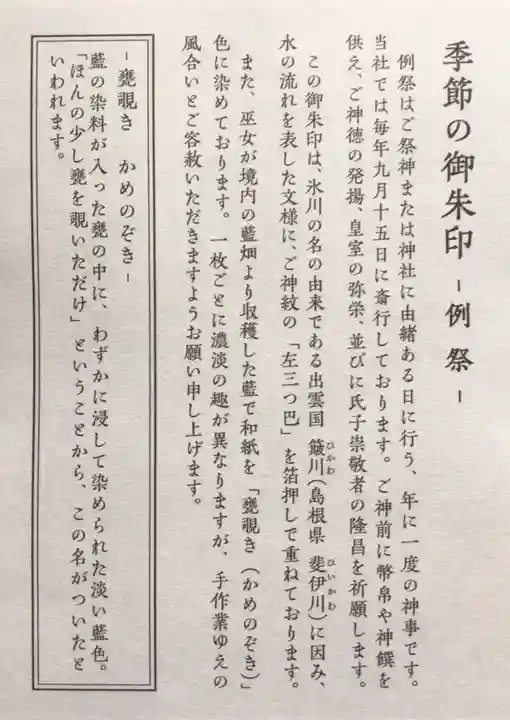 季節の御朱印 - 例祭 -
例祭はご祭神または神社に由緒ある日に行う、年に一度の神事です。
当社では毎年九月十五日に斎行しております。ご神前に幣帛や神饌を
供え、ご神徳の発揚、皇室の弥栄、並びに氏子崇敬者の隆昌を祈願します。
この御朱印は、氷川の名の由来である出雲国 簸川(島根県 斐伊川)に因み、
ひかわ
ひいかわ
水の流れを表した文様に、ご神紋の「左三つ巴」を箔押しで重ねております。
また、巫女が境内の藍畑より収穫した藍で和紙を「甕覗き(かめのぞき)」
色に染めております。一枚ごとに濃淡の趣が異なりますが、手作業ゆえの
風合いとご容赦いただきますようお願い申し上げます。
- 甕覗き かめのぞき -
藍の染料が入った甕の中に、わずかに浸して染められた淡い藍色。
「ほんの少し甕を覗いただけ」ということから、この名がついたと
いわれます。